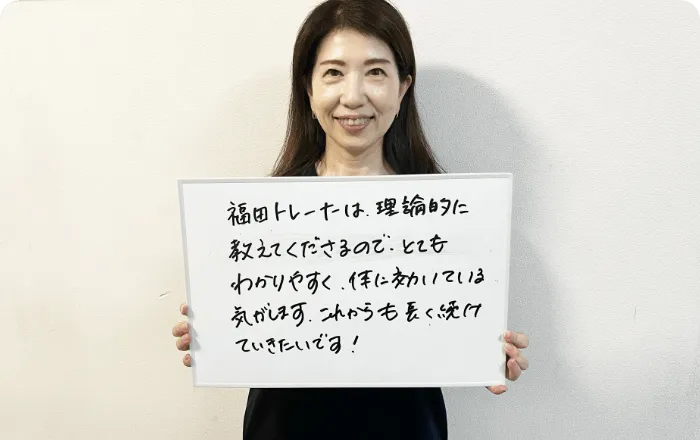 福田トレーナーは、理論的に
教えてくださるので、とても
わかりやすく、体に効いている
気がします。これからも長く続け
ていきたいです！